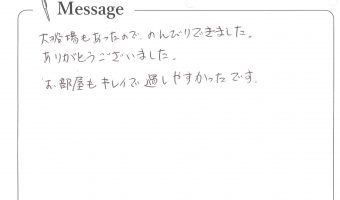 Message
大浴場もあったので、のんびりできました。
ありがとうございました。
お部屋もキレイで過しやすかったです。